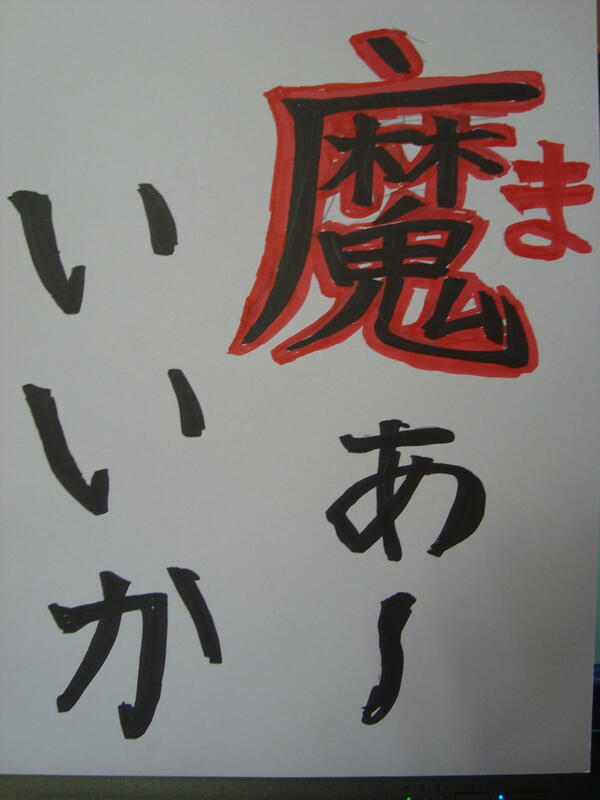 魔あー
ま
いいか